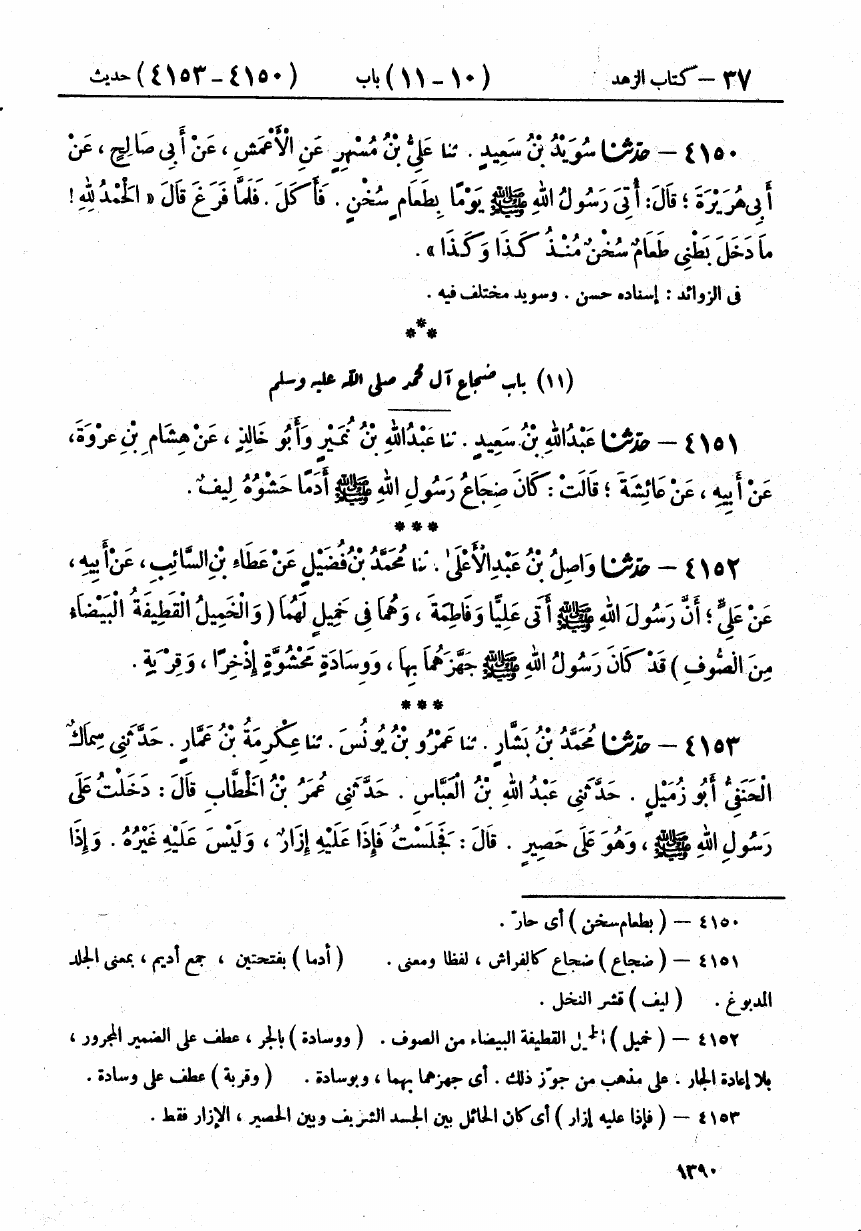 ٣٧ – كتاب الزهد (١٠ – ١١) باب (٤١٥٠ – ٤١٥٣) حديث
٤١٥٠ – حدّثنا سُوَيْدُ بْنُ سَعِيدٍ . ثنا عَلِيُّ بْنُ مُسْهِرٍ عَنِ الْأَعْمَشِ ، عَنْ أَبِي صَالِحٍ ، عَنْ
أَبِي هُرَيْرَةَ ؛ قَالَ : أُتِيَ رَسُولُ اللهِ ﷺ يَوْمًا بِطَعَامٍ سُخْنٍ . فَأَكَلَ . فَلَمَّا فَرَغَ قَالَ « الْحَمْدُ لِلهِ !
مَا دَخَلَ بَطْنِي طَعَامٌ سُخْنٌ مُنْذُ كَذَا وَكَذَا » .
فى الزوائد : إسناده حسن . وسويد مختلف فيه .
***
(١١) باب ضجاع آل محمد صلى الله عليه وسلم
٤١٥١ – حدّثنا عَبْدُاللهِ بْنُ سَعِيدٍ . ثنا عَبْدُاللهِ بْنُ نُمَيْرٍ وَأَبُو خَالِدٍ ، عَنْ هِشَامِ بْنِ عرْوَةَ ،
عَنْ أَبِيهِ ، عَنْ عَائِشَةَ ؛ قَالَتْ : كَانَ ضِجَاعُ رَسُولِ اللهِ ﷺ أَدَمًا حَشْوُهُ لِيفٌ .
***
٤١٥٢ – حدّثنا وَاصِلُ بْنُ عَبْدِالْأَعْلَىٰ . ثنا مُحَمَّدُ بْنُ فُضَيْلٍ عَنْ عَطَاءِ بْنِ السَّائِبِ ، عَنْ أَبِيهِ ،
عَنْ عَلِيٍّ ؛ أَنَّ رَسُولَ اللهِ ﷺ أَتَى عَلِيًّا وَفَاطِمَةَ ، وَهُمَا فِي خَمِيلٍ لَهُمَا ( وَالْخَمِيلُ الْقَطِيفَةُ الْبَيْضَاءُ
مِنَ الصُّوفِ ) قَدْ كَانَ رَسُولُ اللهِ ﷺ جَهَّزَهُمَا بِهَا ، وَوِسَادَةٍ مَحْشُوَّةٍ إِذْخِرًا ، وَقِرْبَةٍ .
***
٤١٥٣ – حدّثنا مُحَمَّدُ بْنُ بَشَّارٍ . ثنا عَمْرُو بْنُ يُونُسَ . ثنا عِكْرِمَةُ بْنُ عَمَّارٍ . حَدَّثَنِي سِمَاكٌ
الْحَنَفِيُّ أَبُو زُمَيْلٍ . حَدَّثَنِي عَبْدُ اللهِ بْنُ الْعَبَّاسِ . حَدَّثَنِي عُمَرُ بْنُ الْخَطَّابِ قَالَ : دَخَلْتُ عَلَى
رَسُولِ اللهِ ﷺ ، وَهُوَ عَلَى حَصِيرٍ . قَالَ : فَجَلَسْتُ فَإِذَا عَلَيْهِ إِزَارٌ ، وَلَيْسَ عَلَيْهِ غَيْرُهُ . وَإِذَا
٤١٥٠ – ( بطعام سخن ) أى حارّ .
٤١٥١ – ( ضجاع ) ضجاع كالفراش ، لفظا ومعنى . ( أدما ) بفتحتين ، جمع أديم ، بمعنى الجلد
المدبوغ . ( ليف ) قشر النخل .
٤١٥٢ – ( خميل ) الخميل القطيفة البيضاء من الصوف . ( ووسادة ) بالجر ، عطف على الضمير المجرور ،
بلا إعادة الجار . على مذهب من جوّز ذلك . أى جهزهما بهما ، وبوسادة . ( وقربة ) عطف على وسادة .
٤١٥٣ – ( فإذا عليه إزار ) أى كان الحائل بين الجسد الشريف وبين الحصير ، الإزار فقط .
١٣٩٠